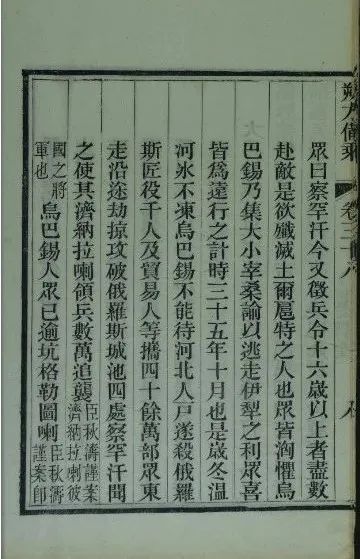 眾曰察罕汗今又徵兵令十六歲以上者盡數
赴敵是欲殲滅土爾扈特之人也眾皆洶懼烏
巴錫乃集大小宰桑諭以逃走伊犁之利眾喜
皆為遠行之計時三十五年十月也是歲冬溫
河氷不凍烏巴錫不能待河北人戶遂殺俄羅
斯匠役千人及貿易人等攜四十餘萬部眾東
走沿途劫掠攻破俄羅斯城池四處察罕汗聞
之使其濟納拉喇領兵數萬追襲臣秋濤謹案
濟納拉喇彼
國之將
軍也烏巴錫人眾已逾坑格勒圖喇臣秋濤
謹案即
朔方備乘
卷三十八